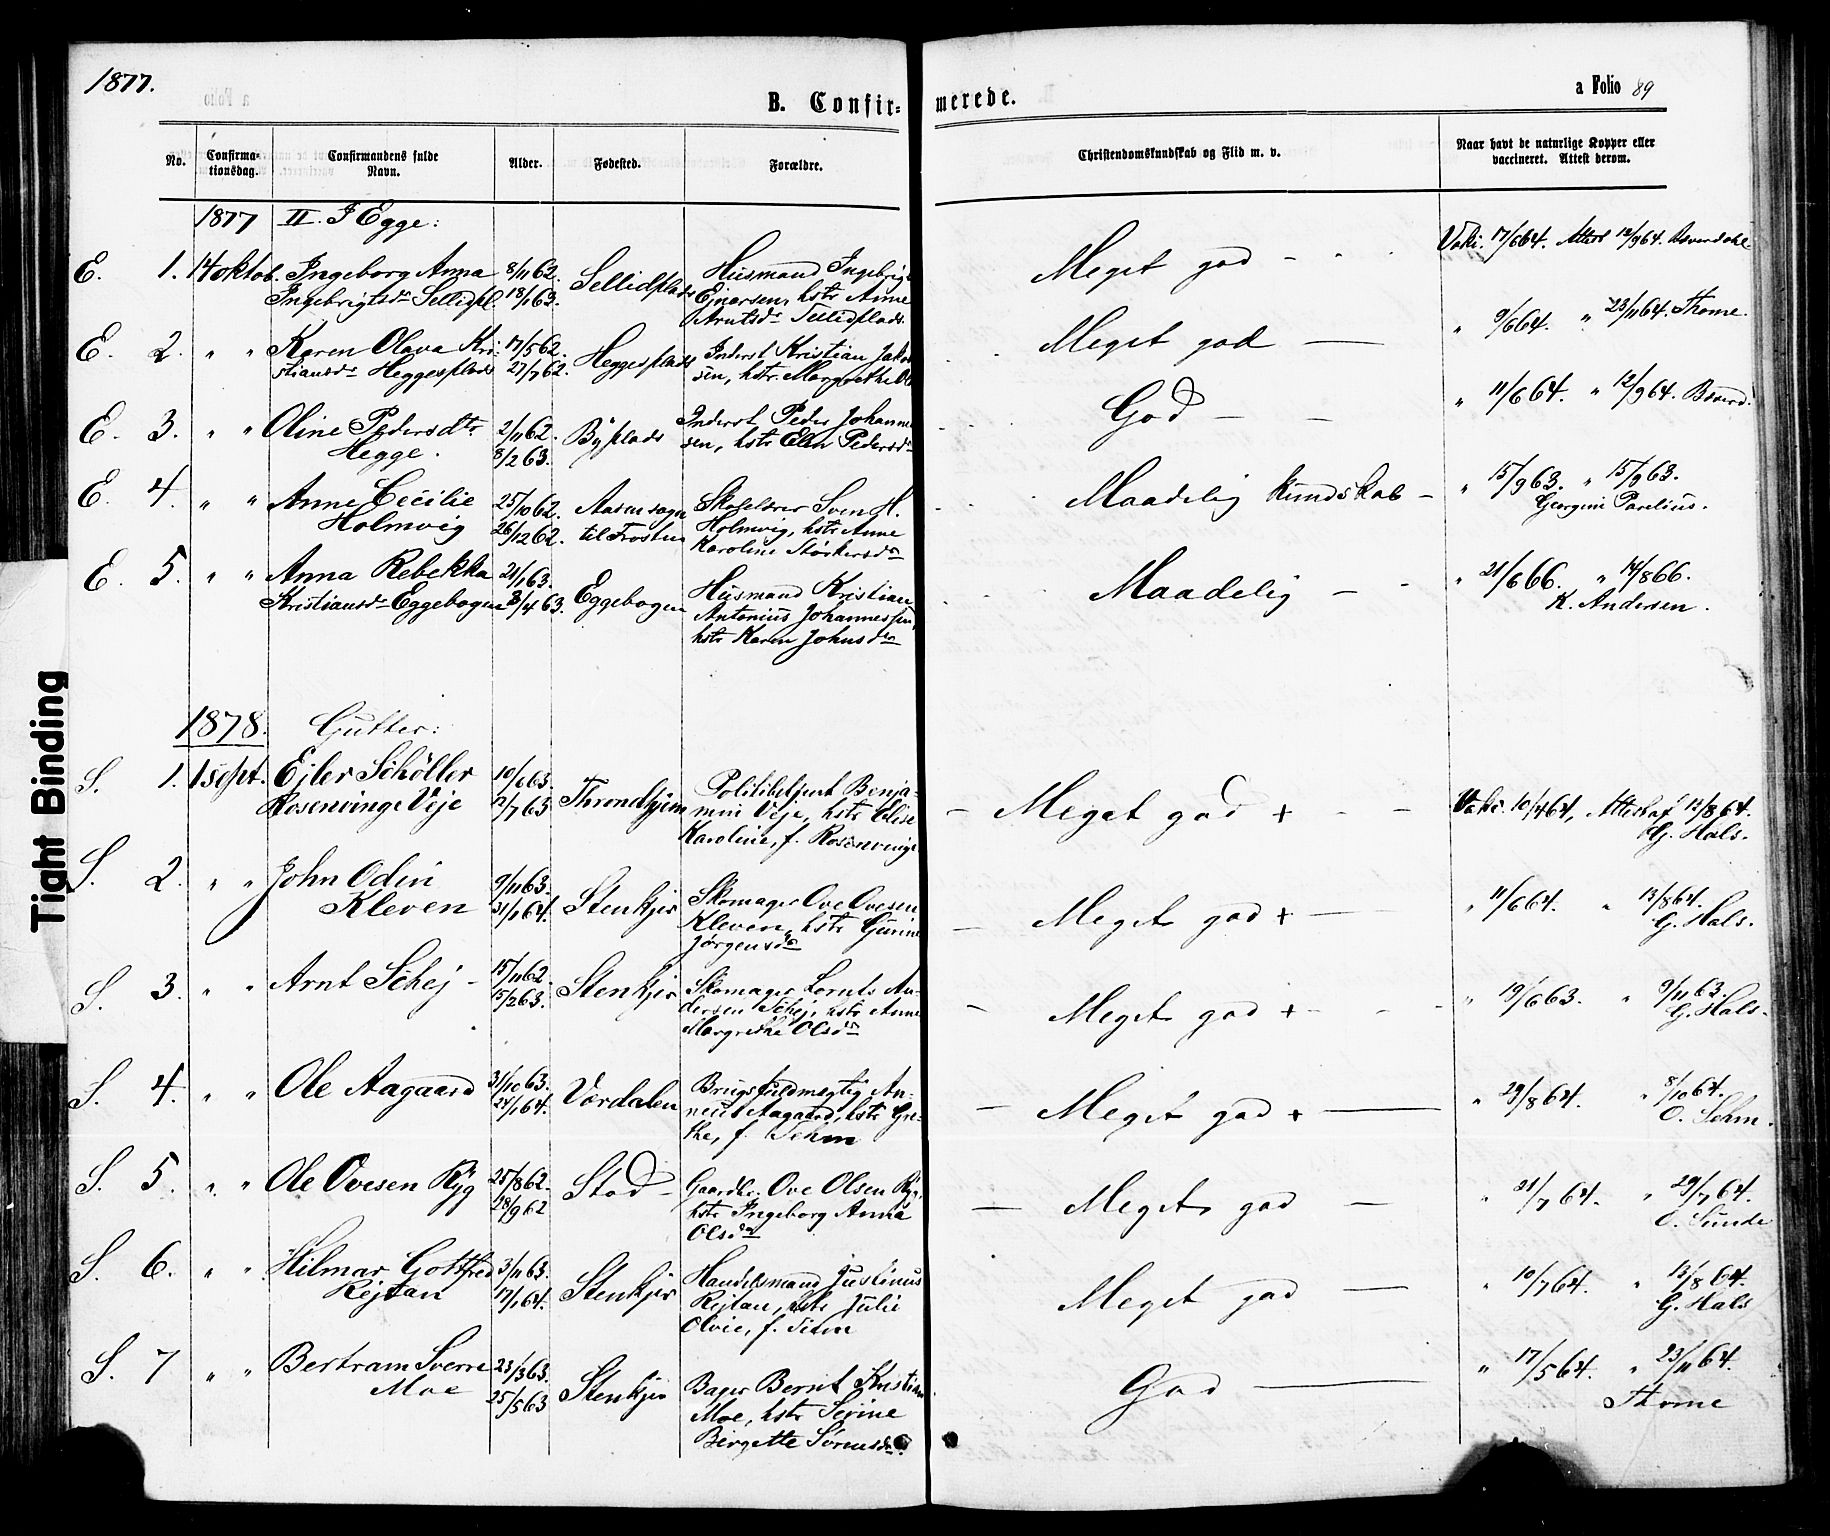 1877.
B. Confir=
merede.
a Folio 89
No.
Confirma-
tionsdag.
Confirmandens fulde
Navn.
Alder.
Fødested.
Forældre.
Christendomskundskab og Flid m. v.
Naar havt de naturlige Kopper eller
vaccineret. Attest derom.
1877 II. I Egge:
E. 1. 14 oktob. Ingeborg Anna 8/11 62. Sellidplads Husmand Ingebrigt Meget god - - - Vaki. 17/6 64. Attest 12/9 64.
Ingebrigtsdr Sellidpl. 18/1 63. Ejnarsen, hstr Anne
Arntsdr Sellidplads.
E. 2. " " Karen Olava Kri- 17/5 62. Heggesplads Inderst Kristian Jakob Meget god — " 9/6 64. " 23/11 64. Thome.
stiansdr Heggesplads 27/7 62. sen, hstr. Margrethe
E. 3. " " Oline Pedersdtr 2/11 62. Byplads Inderst Peder Johanne God — — " 11/6 64. " 12/9 64.
Hegge. 8/2 63. sen, hstr Elen Pedersdr
E. 4. " " Anne Cecilie 25/10 62. Aasen sogn Skolelærer Sven H. Maadelig kundskab — " 15/9 63. " 15/9 63.
Holmvig 26/12 62. til Frosten Holmvig, hstr Anne Georgine Parelius.
Karoline Størkersdr
E. 5. " " Anna Rebekka 21/1 63. Eggebogen Husmand Kristian Maadelig — - " 21/6 66. " 14/8 66.
Kristiansdr Eggebogen 3/4 63. Antonius Johannessen, K. Andersen.
hstr Karen Johnsdr
1878. Gutter:
S. 1. 1 sept. Ejler Schöller 10/6 63. Throndhjem Politibetjent Benja- — Meget god + - — Vaki. 10/4 64, Attest af 13/8 64.
Rosenvinge Veje 12/7 63 min Veje, hstr Elise G. Hals.
Karoline, f. Rosenvinge
S. 2. " " John Odin 9/11 63. Stenkjer Skomager Ove Ovesen — Meget god + — " 11/6 64. " 13/8 64.
Kleven 31/1 64. Kleven, hstr Gurine G. Hals.
Jørgensdr
S. 3. " " Arnt Schej - 15/11 62. Stenkjer Skomager Lornts An- — Meget god + - - - " 19/6 63. " 9/11 63.
15/2 63. dersen Schej, hstr Anne G. Hals.
Margrethe Olsdr
S. 4. " " Ole Aagaard 31/10 63. Værdalen Brugsfuldmegtig An- — Meget god + — " 29/8 64. " 8/10 64.
24/1 64. neus Aagaard, hstr Gre- O. Sehm.
the, f. Sehm
S. 5. " " Ole Ovesen Ryg 25/8 62. Stod — Gaardbr. Ove Olsen Ryg — Meget god — " 21/7 64. " 29/7 64.
28/9 62 hstr Ingeborg Anna O. Sunde
Olsdr
S. 6. " " Hilmar Gottfred 3/11 63. Stenkjer Handelsmand Justinus Meget god — " 10/7 64. " 13/8 64.
Rejtan 17/1 64. Rejtan, hstr Julie G. Hals
Olvie, f.
S. 7 " " Bertram Sverre 23/3 63. Stenkjer Bager Bernt Kristian God — " 17/5 64. " 23/11 64.
Moe 25/5 63 Moe, hstr Serine Thome
Birgette Sørensdr.
Tight Binding